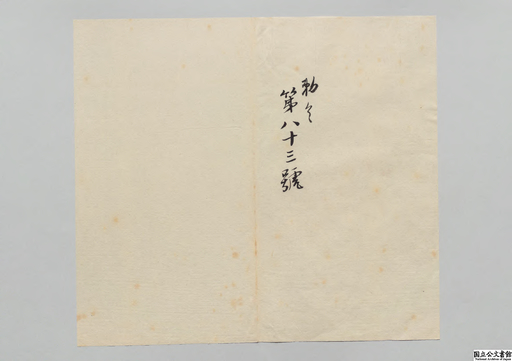 勅令
第八十三號
国立公文書館
National Archives of Japan